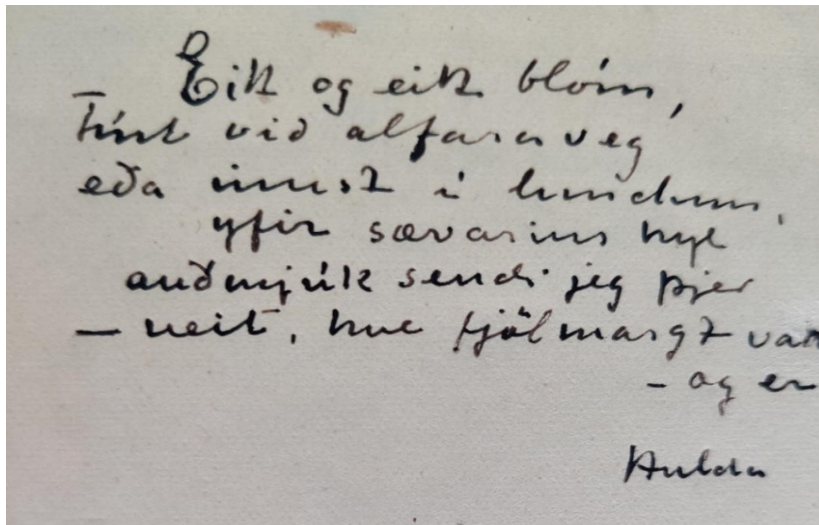 Eitt og eitt blóm,
tínt við alfaraveg
eða innst í lundum,
yfir sævarins hyl
auðmjúk sendi jeg þjer
— veit, hve fjölmargt var
– og er
Hulda